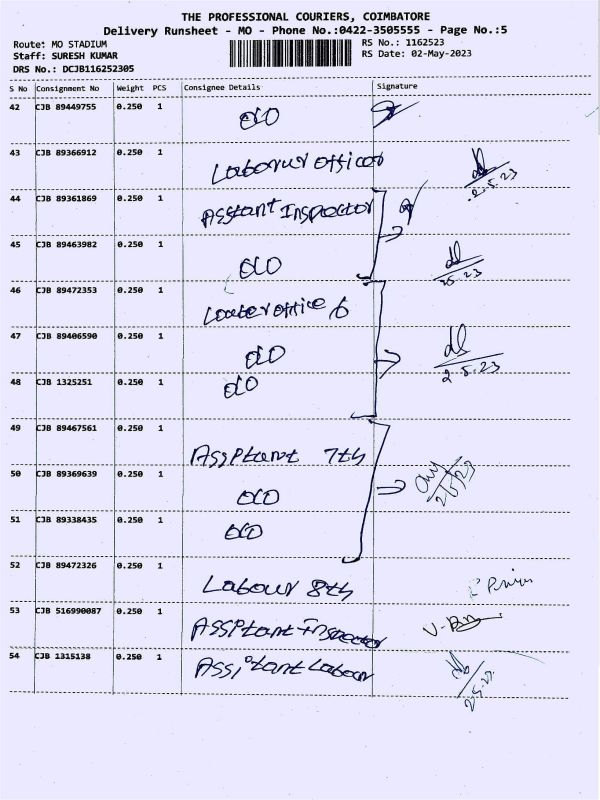 THE PROFESSIONAL COURIERS, COIMBATORE
Delivery Runsheet - MO - Phone No.:0422-3505555 - Page No.:5
Route: MO STADIUM RS No.: 1162523
Staff: SURESH KUMAR RS Date: 02-May-2023
DRS No.: DCJB116252305
S No Consignment No Weight PCS Consignee Details Signature
42 CJB 89449755 0.250 1 do
43 CJB 89366912 0.250 1 Labour officer 2.5.23
44 CJB 89361869 0.250 1 Asstant Inspector
45 CJB 89463982 0.250 1 do 2.5.23
46 CJB 89472353 0.250 1 office 6
47 CJB 89406590 0.250 1 do 2.5.23
48 CJB 1325251 0.250 1 do
49 CJB 89467561 0.250 1 Assptant 7th
50 CJB 89369639 0.250 1 do 2/5/23
51 CJB 89338435 0.250 1 do
52 CJB 89472326 0.250 1 Labour 8th
53 CJB 516990087 0.250 1 Assptant Inspector
54 CJB 1315138 0.250 1 Assitant Labour